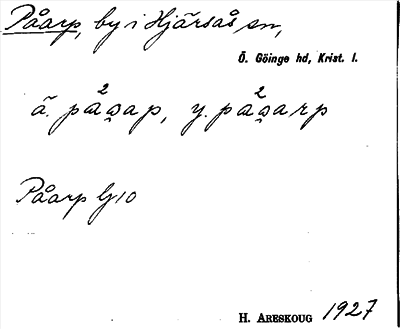 Påarp, by i Hjärsås sn,
Ö. Göinge hd, Krist. l.
ä. på²a̯ap, y. på²a̯arp
Påarp Gj 10
H. ARESKOUG 1927